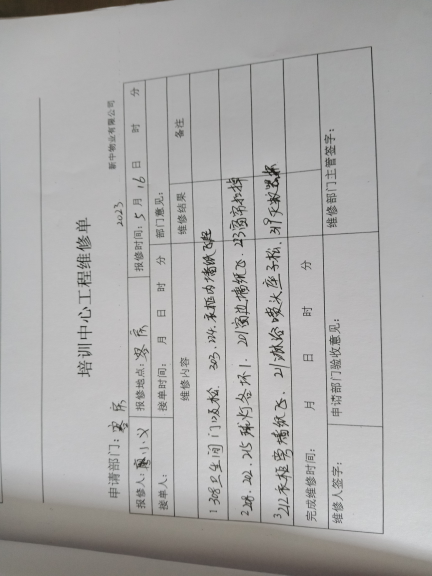 培训中心工程维修单
新中物业有限公司
申请部门：客房 2023
报修人：小义 报修地点：客房 报修时间：5月16日 时 分
接单人： 接单时间： 月 日 时 分 部门意见：
维修内容 维修结果 备注
1 308卫生间门吸松. 303.224.衣柜内墙纸飞起
2 208.202.215球灯各坏1. 201窗边墙纸飞. 223窗帘扣掉
3 212衣柜旁墙纸飞. 211淋浴喷头座子松. 219灭
完成维修时间： 月 日 时 分
维修人签字： 申请部门验收意见： 维修部门主管签字：